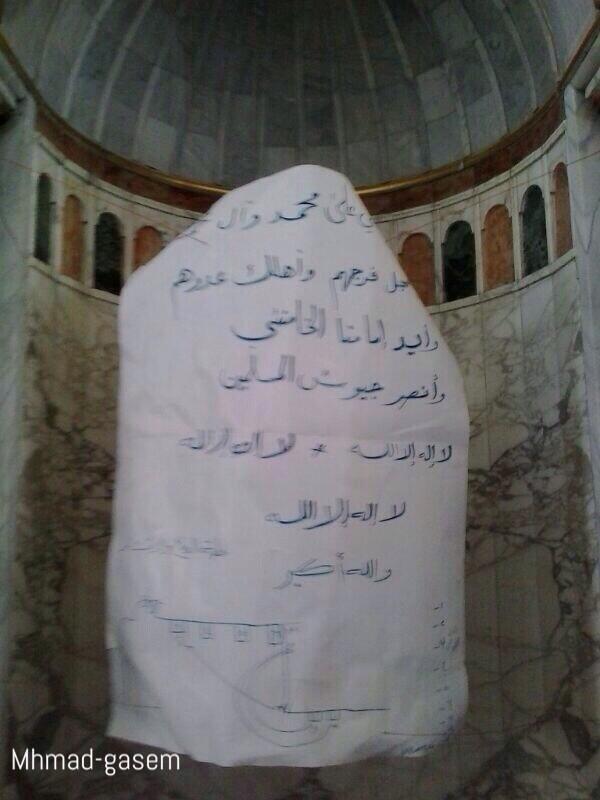 على محمد وآل
جل فرجهم وأهلك عدوهم
وأيد إمامنا الخامنئي
وأنصر جيوش المسلمين
لا إله إلا الله * لا إله إلا الله
لا إله إلا الله
والله أكبر
Mhmad-gasem